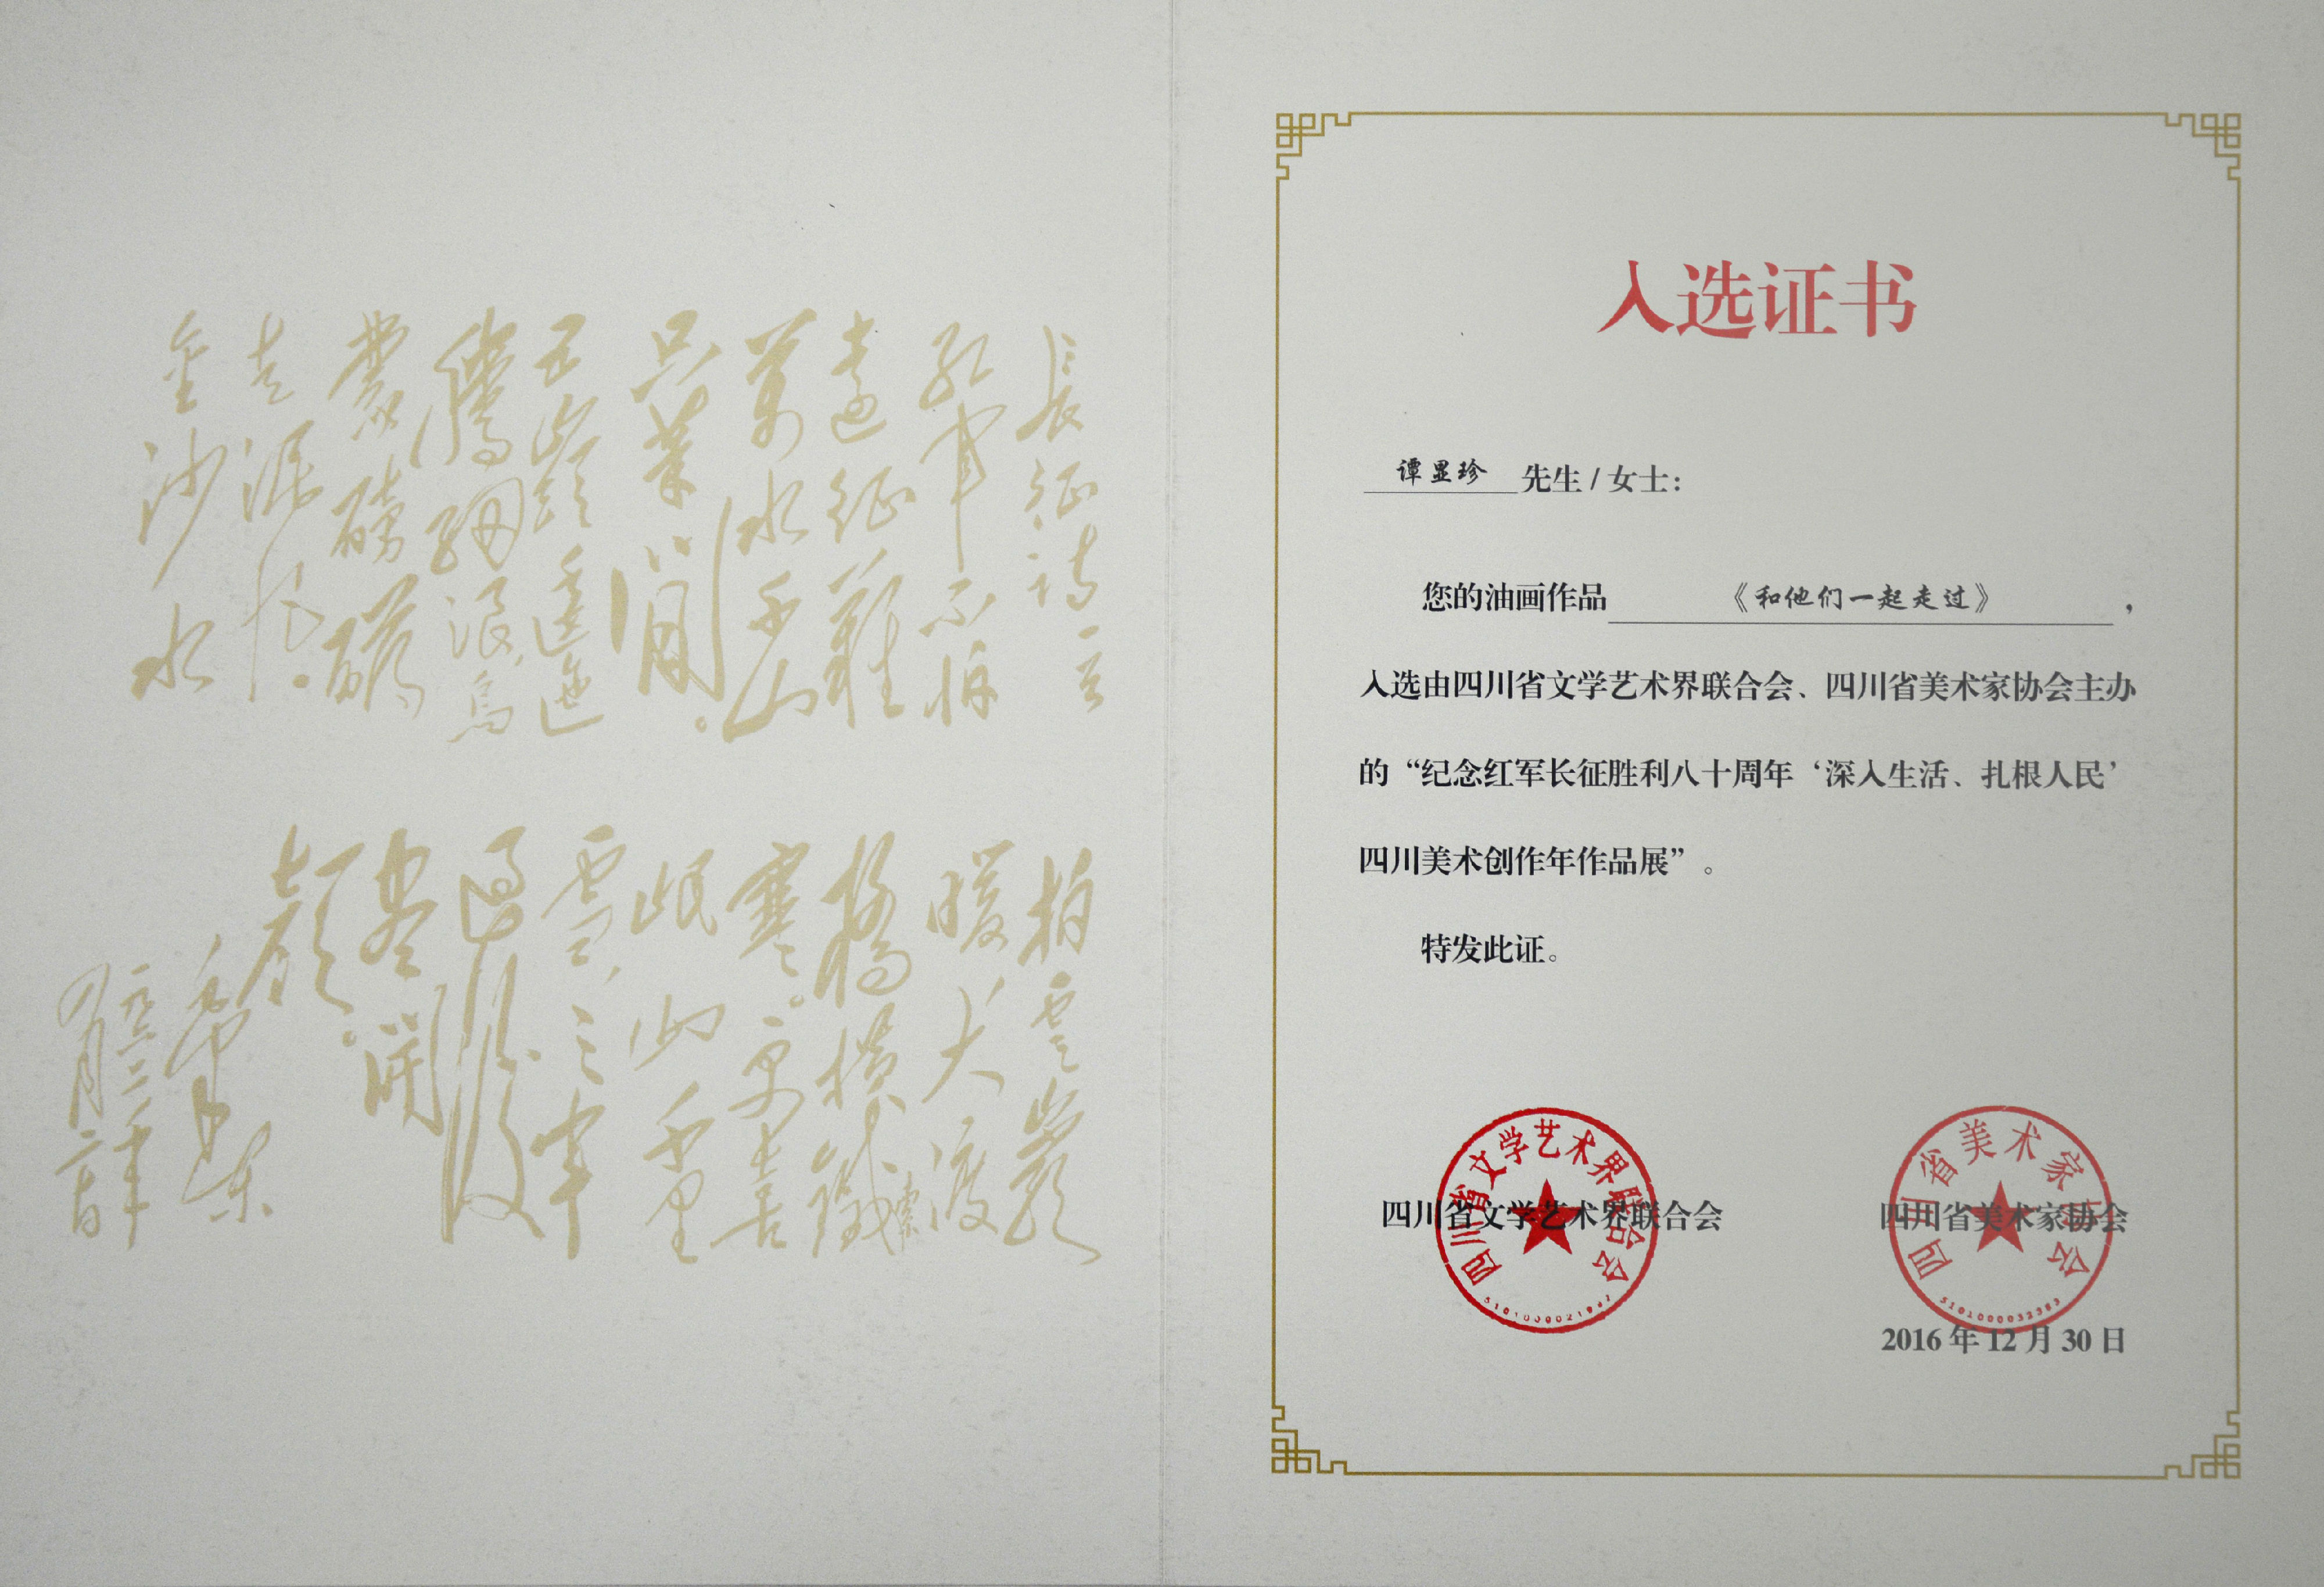 長征詩一首
紅軍不怕
遠征難
萬水千山
只等閒。
五嶺逶迤
騰細浪,烏
蒙磅礴
走泥丸。
金沙水
拍雲巖
暖大渡
橋橫鐵索
寒。更喜
岷山千里
雪,三軍
過後
盡開
顏。
毛澤東
四月二十日
入选证书
谭显珍 先生 / 女士:
您的油画作品 《和他们一起走过》 ,
入选由四川省文学艺术界联合会、四川省美术家协会主办
的“纪念红军长征胜利八十周年‘深入生活、扎根人民’
四川美术创作年作品展”。
特发此证。
四川省文学艺术界联合会
四川省美术家协会
四川省文学艺术界联合会
四川省美术家协会
2016 年 12 月 30 日